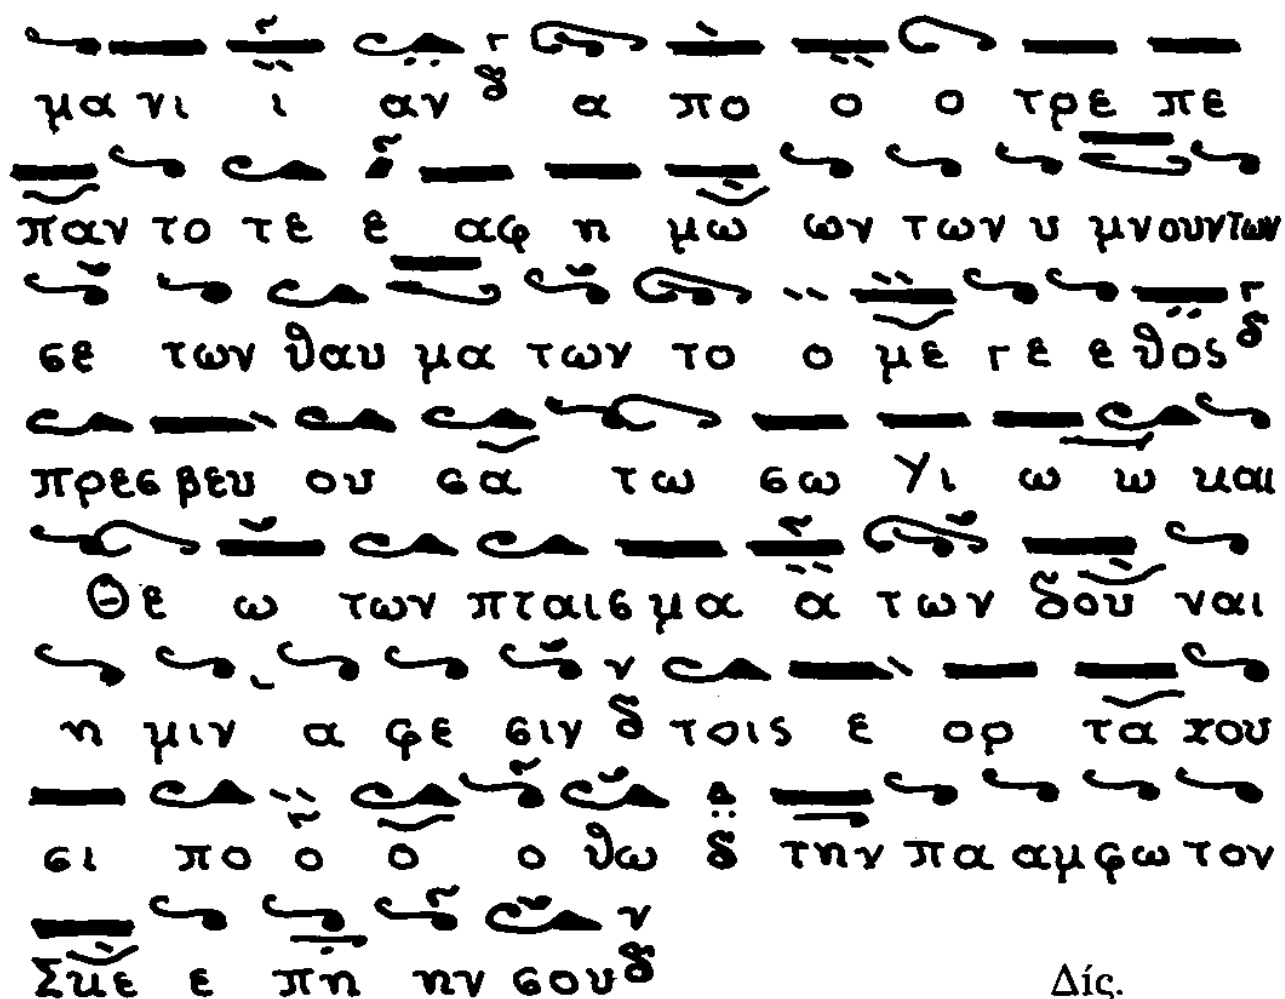 μα νι ι αν δ α πο ο ο τρε πε
παν το τε ε αφ η μω ων των υ μνουντων
σε των θαυ μα των το ο με γε ε θος δ
πρεσ βευ ου σα τω σω Υι ω ω και
Θε ω των πταισ μα α των δου ναι
η μιν α φε σιν δ τοις ε ορ τα ζου
σι πο ο ο ο θω δ την πα αμφω τον
Σκε ε πη ην σου δ
Δίς.